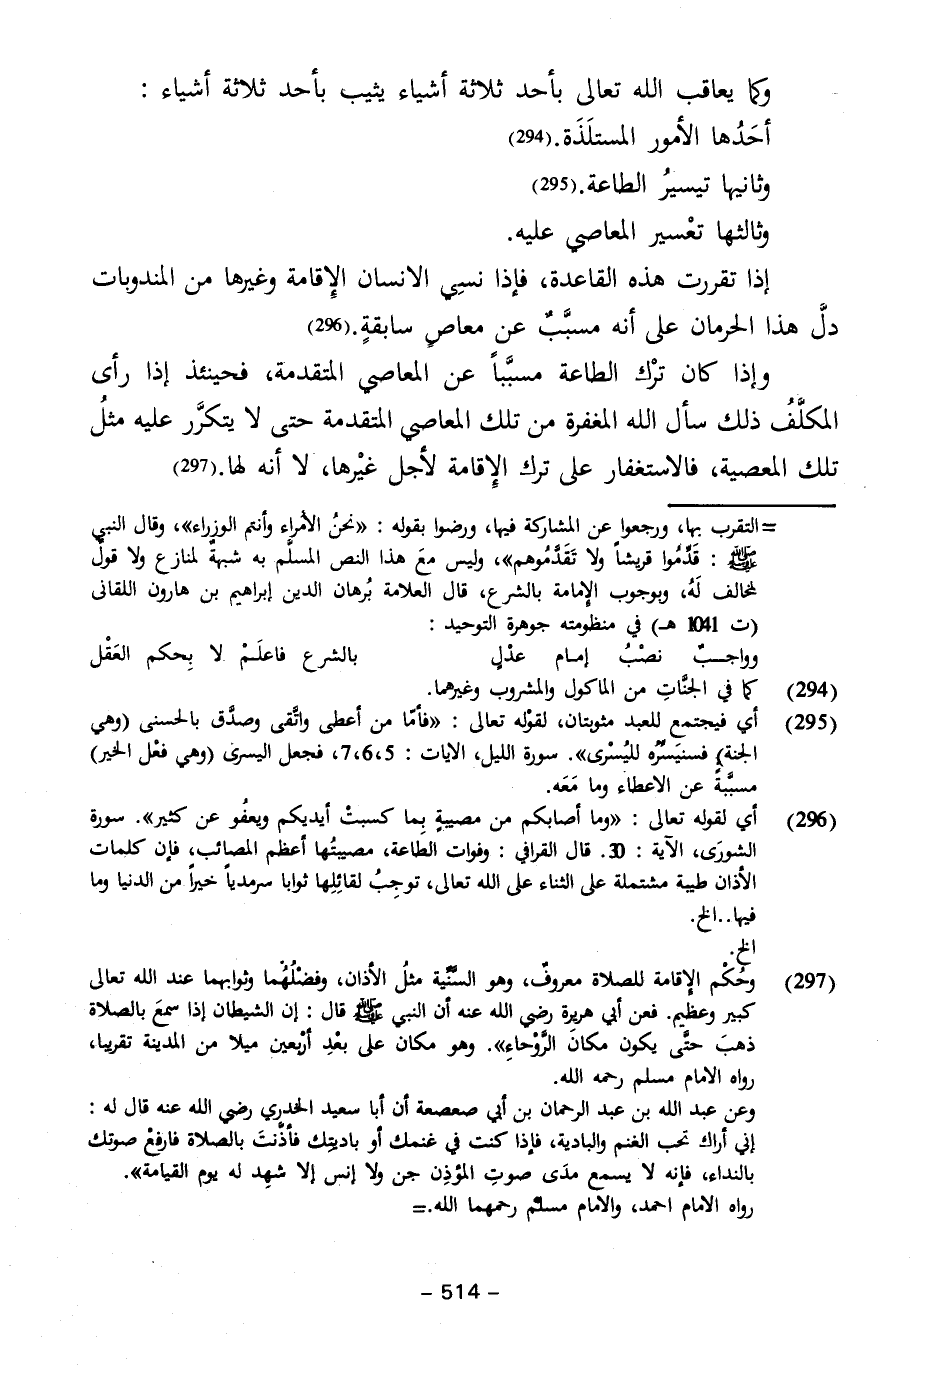 وكما يعاقب الله تعالى بأحد ثلاثة أشياء يثيب بأحد ثلاثة أشياء :
أحَدُها الأمور المستلَذَة.(294)
وثانيها تيسيرُ الطاعة.(295)
وثالثها تعْسير المعاصي عليه.
إذا تقررت هذه القاعدة، فإذا نسِي الانسان الإِقامة وغيرها من المندوبات
دلَّ هذا الحرمان على أنه مسبَّبٌ عن معاصٍ سابقةٍ.(296)
وإذا كان ترْك الطاعة مسبَّباً عن المعاصي المتقدمة، فحينئذ إذا رأى
المكلَّفُ ذلك سأل الله المغفرة من تلك المعاصي المتقدمة حتى لا يتكرَّر عليه مثلُ
تلك المعصية، فالاستغفار على ترك الإِقامة لأجل غيْرها، لا أنه لها.(297)
=التقرب بها، ورجعوا عن المشاركة فيها، ورضوا بقوله : «نحنُ الأمراء وأنتم الوزراء»، وقال النبي
ﷺ : قَدِّمُوا قريشاً ولا تَقَدَّمُوهم»، وليس معَ هذا النص المسلَّم به شبهةٌ لمنازع ولا قولٌ
لمخالف لَهُ، وبوجوب الإِمامة بالشرع، قال العلامة بُرهان الدين إبراهيم بن هارون اللقانى
(ت 1041 هـ) في منظومته جوهرة التوحيد :
وواجــبٌ نصْبُ إمـام عدْلِ بالشرع فاعلَمْ لا بِحكم العَقْل
(294) كما في الجنَّاتِ من الماكول والمشروب وغيرهما.
(295) أي فيجتمع للعبد مثوبتان، لقوْله تعالى : «فأمّا من أعطى واتَّقى وصدَّق بالحسنى (وهي
الجنة) فسنيَسِّرُه لليُسْرى». سورة الليل، الايات : 7،6،5، فجعل اليسرى (وهي فعْل الخير)
مسبَّبةً عن الاعطاء وما مَعَه.
(296) أي لقوله تعالى : «وما أصابكم من مصيبةٍ بِما كسبتْ أيديكم ويعفُو عن كثير». سورة
الشورَى، الآية : 30. قال القرافي : وفوات الطاعة، مصيبتُها أعظم المصائب، فإن كلمات
الأذان طيبة مشتملة على الثناء على الله تعالى، توجِبُ لقائِلِها ثوابا سرمدياً خيراً من الدنيا وما
فيها..الخ.
الخ.
(297) وحُكْم الإقامة للصلاة معروفٌ، وهو السنّية مثلُ الأذان، وفضْلُهُما وثوابهما عند الله تعالى
كبير وعظيم. فعن أبي هريرة رضي الله عنه أن النبي ﷺ قال : إن الشيطان إذا سمعَ بالصلاة
ذهبَ حتَّى يكون مكانَ الرَّوْحاء». وهو مكان على بعْدِ أرْبعين ميلا من المدينة تقريبا،
رواه الامام مسلم رحمه الله.
وعن عبد الله بن عبد الرحمان بن أبي صعصعة أن أبا سعيد الخدري رضي الله عنه قال له :
إني أراك تحب الغنم والبادية، فإذا كنت في غنمك أو باديتِك فأذَّنتَ بالصلاة فارفعْ صوتك
بالنداء، فإنه لا يسمع مدَى صوتِ المؤذِن جن ولا إنس إلا شهِد له يوم القيامة».
رواه الامام احمد، والامام مسلم رحمهما الله.=
- 514 -